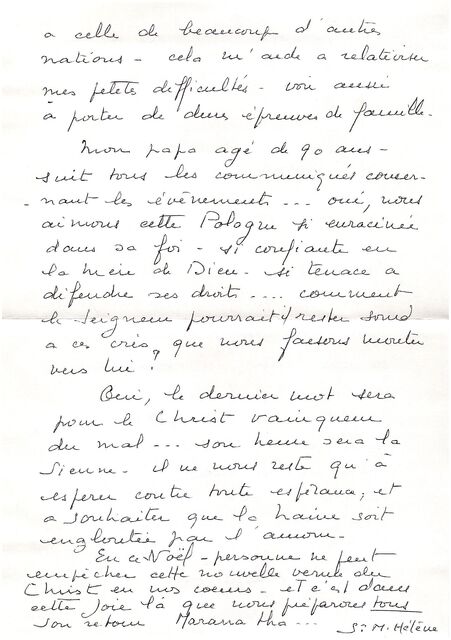 a celle de beaucoup d'autres
nations - cela m'aide a relativiser
mes petites difficultés - voir aussi
à porter de dures épreuves de famille.
Mon papa agé de 90 ans -
suit tous les communiqués conser-
-nant les évènements... oui, nous
aimons cette Pologne si enracinée
dans sa foi - si confiante en
la Mère de Dieu - si tenace a
défendre ses droits.... comment
le Seigneur pourrait il rester sourd
a ces cris, que nous faisons monter
vers lui ?
Oui, le dernier mot sera
pour le Christ vainqueur
du mal... son heure sera la
Sienne - il ne nous reste qu'à
espérer contre toute espérance, et
a souhaiter que la haine soit
engloutie par l'amour.
En ce Noël - personne ne peut
empêcher cette nouvelle venue du
Christ en nos coeurs - et c'est dans
cette joie là que nous préparons tous
son retour Marana tha...
Sr M. Hélène